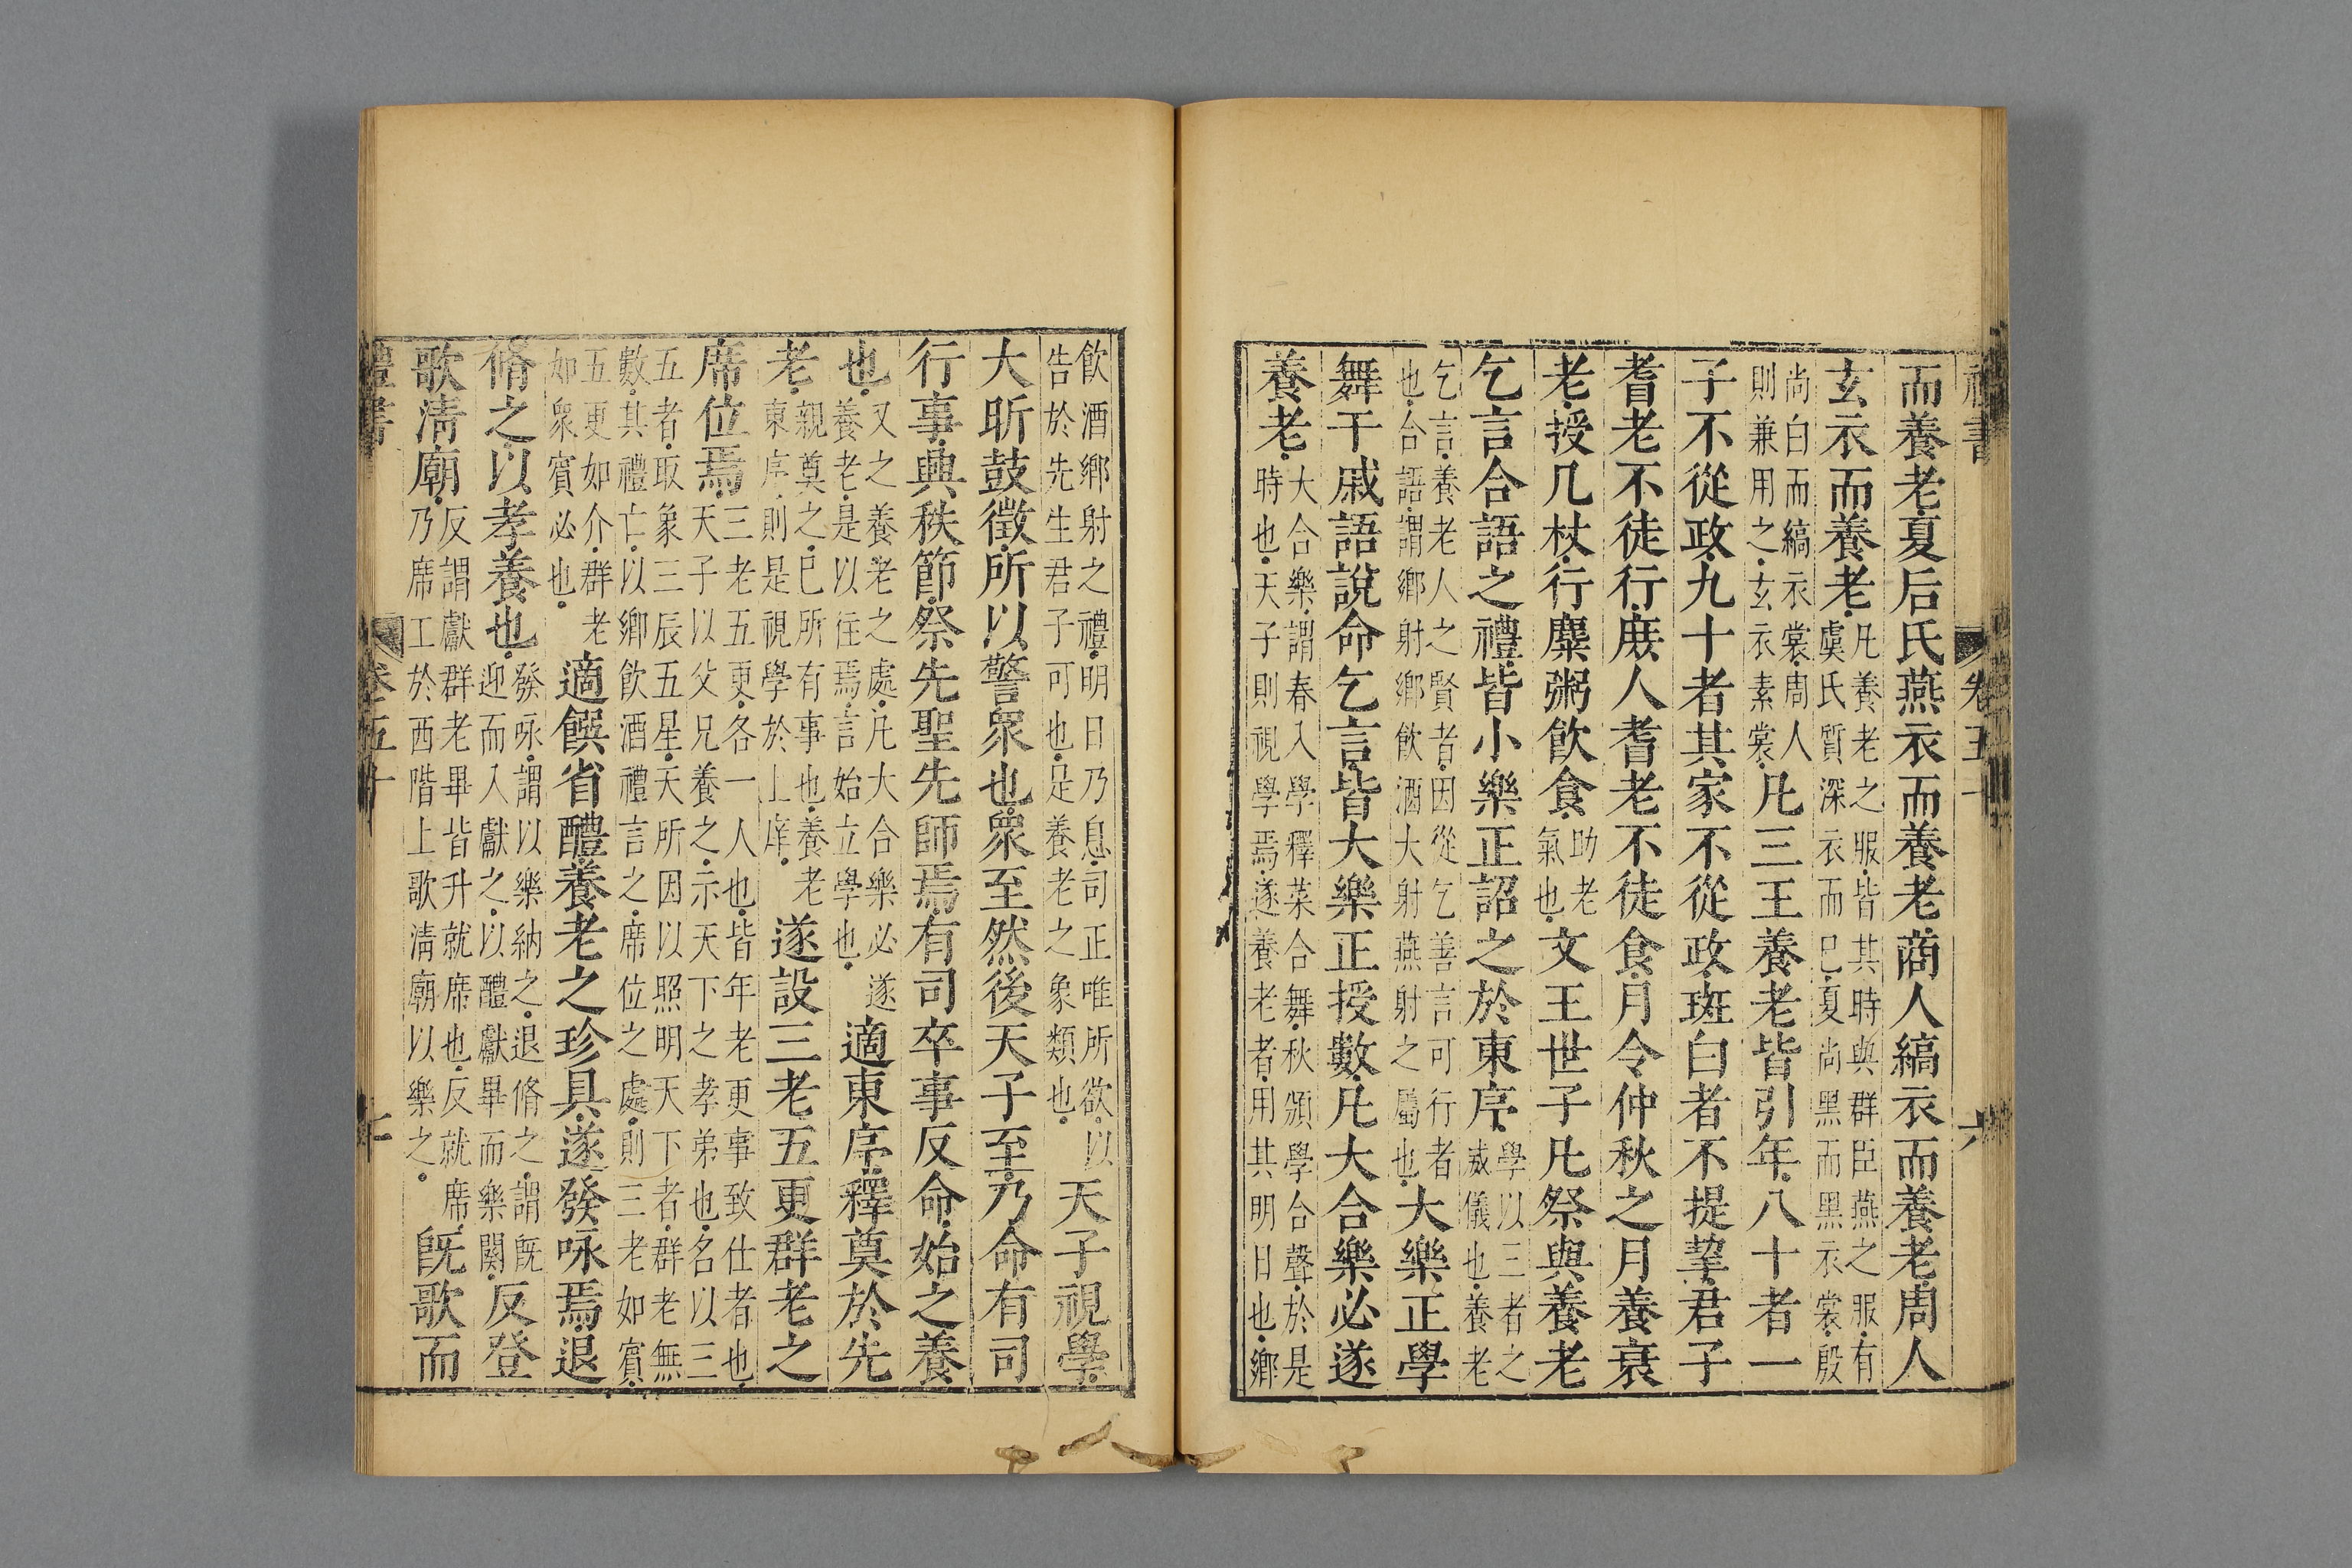 而養老夏后氏燕衣而養老商人縞衣而養老周人
玄衣而養老凡養老之服皆其時與群臣燕之服有
虞氏質深衣而已夏尚黑而黑衣裳殷
尚白而縞衣裳周人
則兼用之玄衣素裳凡三王養老皆引年八十者一
子不從政九十者其家不從政斑白者不提挈君子
耆老不徒行庶人耆老不徒食月令仲秋之月養衰
老授几杖行麋粥飲食助老
氣也文王世子凡祭與養老
乞言合語之禮皆小樂正詔之於東序學以三者之
威儀也養老
乞言養老人之賢者因從乞善言可行者
也合語謂鄉射鄉飲酒大射燕射之屬也大樂正學
舞干戚語說命乞言皆大樂正授數凡大合樂必遂
養老大合樂謂春入學釋菜合舞秋頒學合聲於是
時也天子則視學焉遂養老者用其明日也鄉
飲酒鄉射之禮明日乃息司正唯所欲以
告於先生君子可也是養老之象類也天子視學
大昕鼓徵所以警眾也眾至然後天子至乃命有司
行事典秩節祭先聖先師焉有司卒事反命始之養
也又之養老之處凡大合樂必遂
養老是以往焉言始立學也適東序釋奠於先
老親奠之已所有事也養老
東序則是視學於上庠遂設三老五更群老之
席位焉三老五更各一人也皆年老更事致仕者也
天子以父兄養之示天下之孝弟也名以三
五者取象三辰五星天所因以照明天下者群老無
數其禮亡以鄉飲酒禮言之席位之處則三老如賓
五更如介群老
如眾賓必也適饌省醴養老之珍具遂發咏焉退
脩之以孝養也發咏謂以樂納之退脩之謂既
迎而入獻之以醴獻畢而樂闋反登
歌清廟反謂獻群老畢皆升就席也反就席
乃席工於西階上歌清廟以樂之既歌而
禮書
卷五十